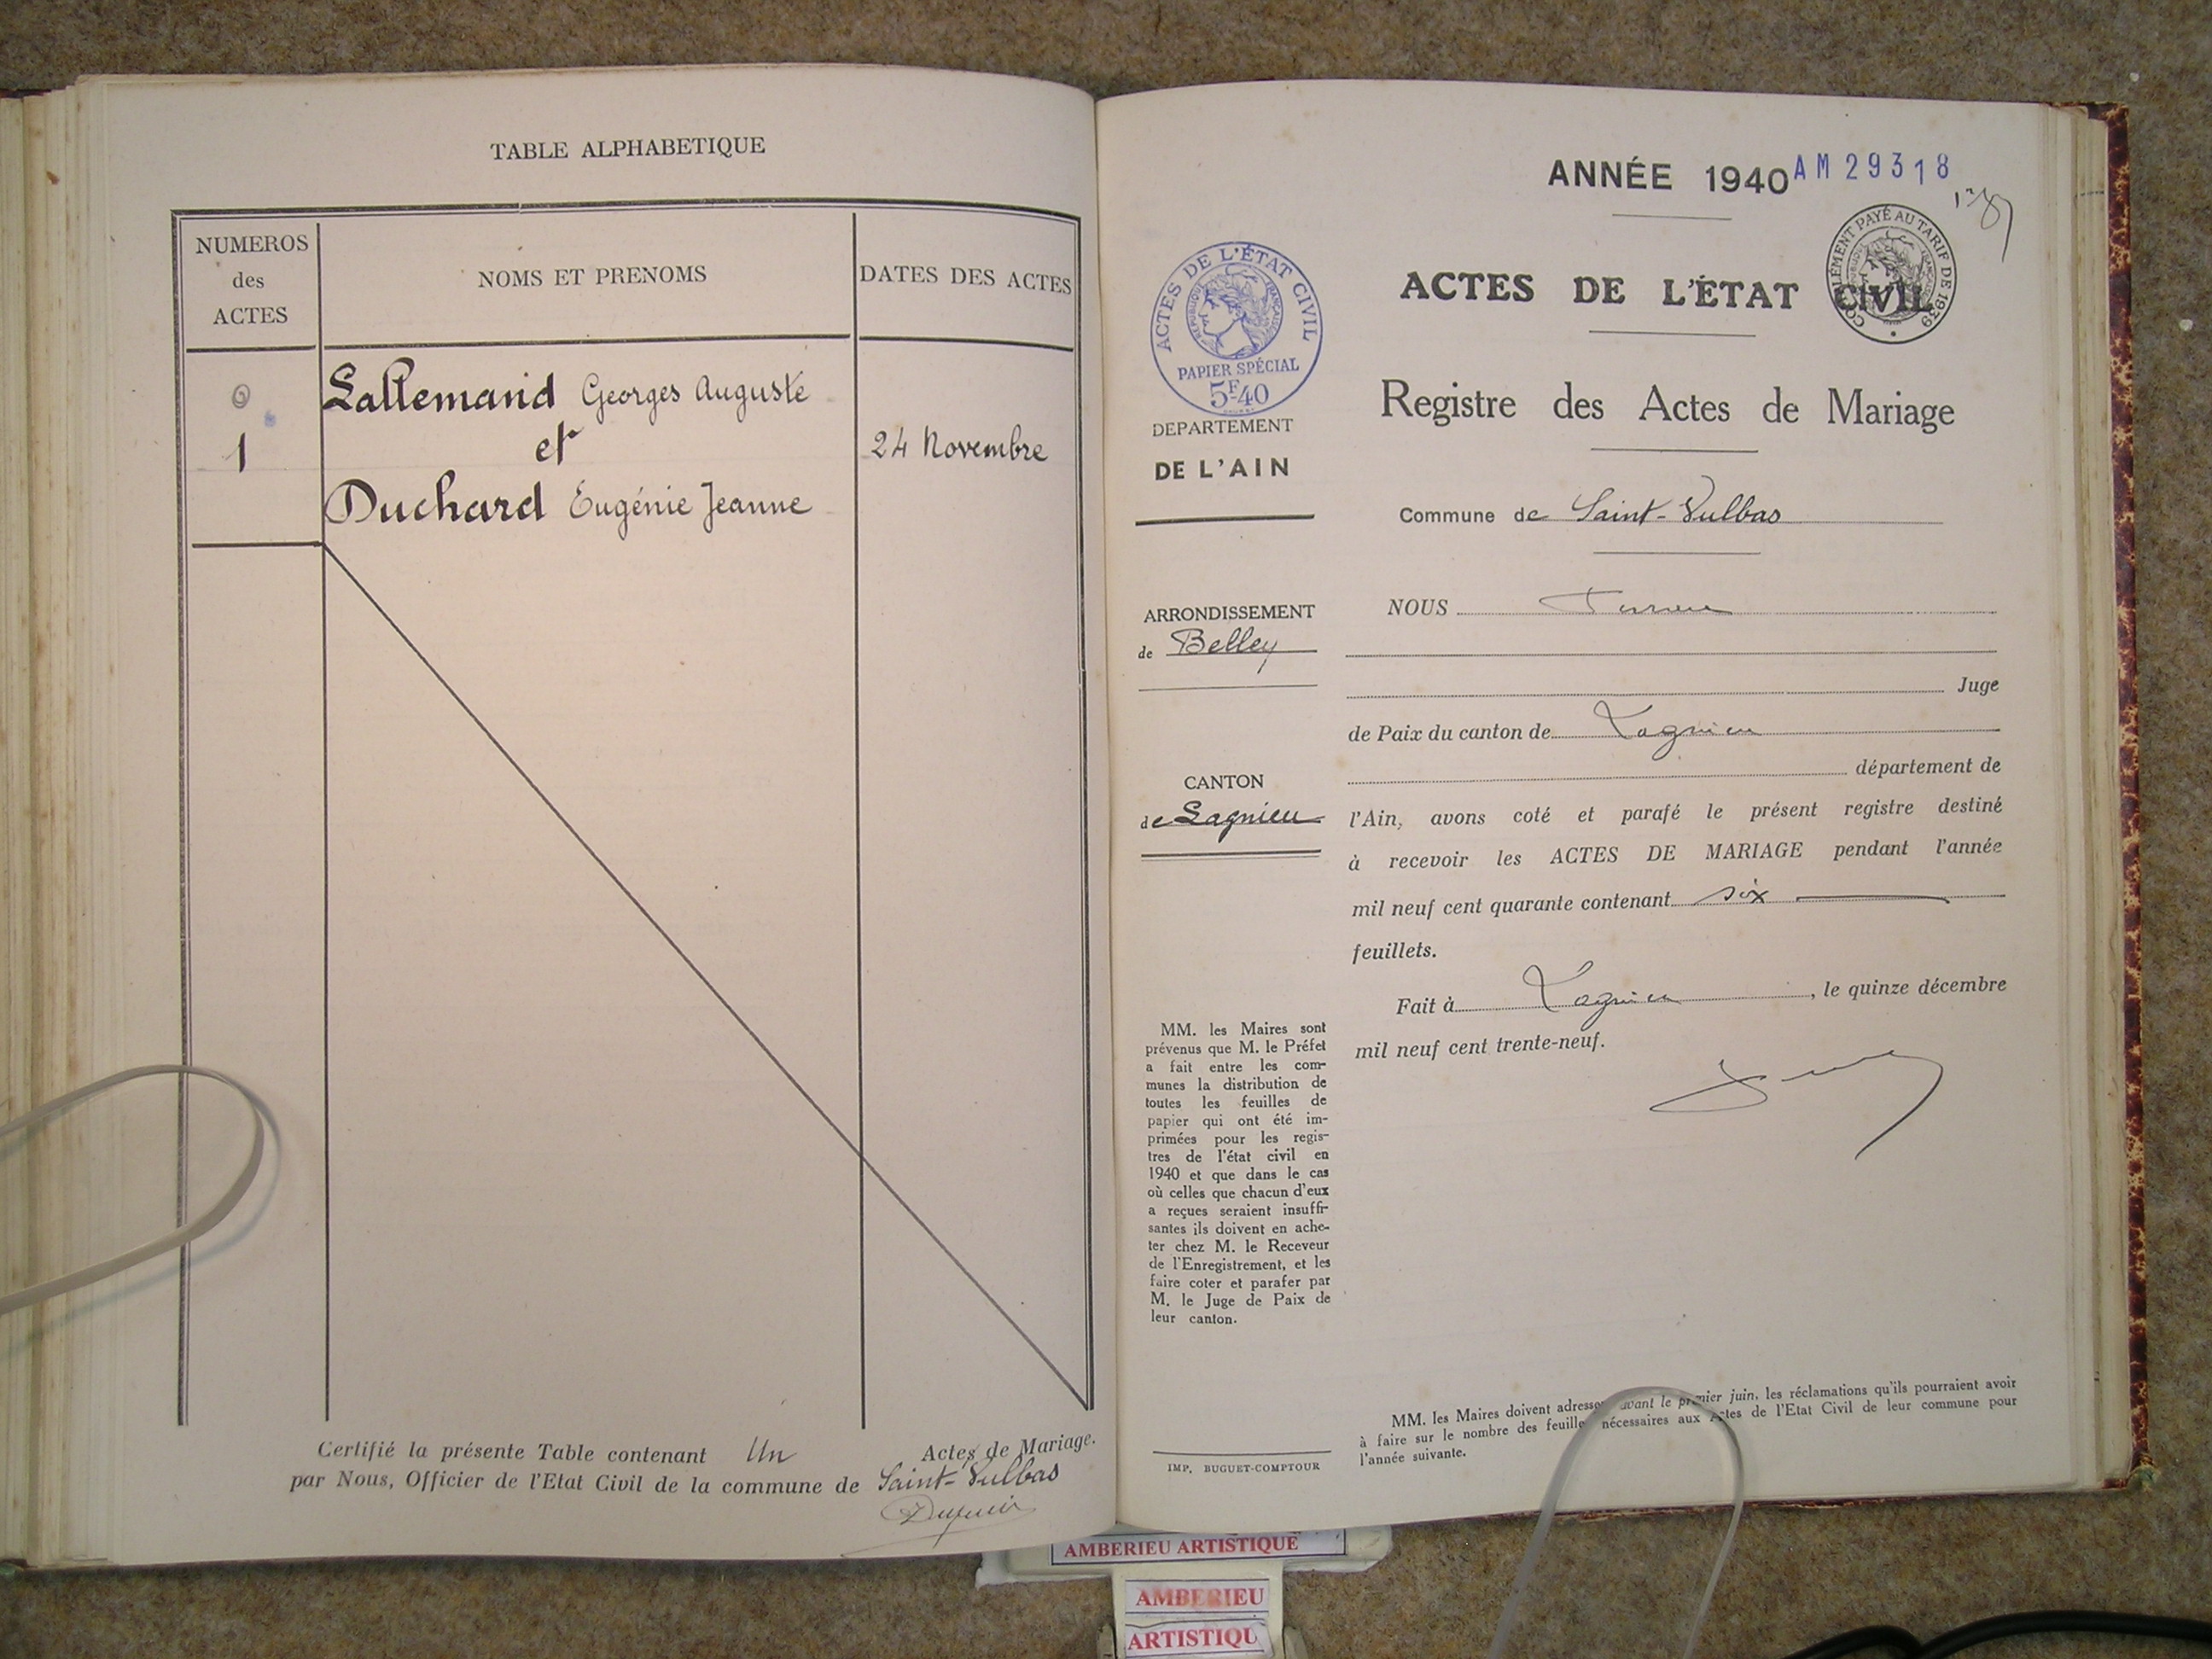 TABLE ALPHABETIQUE
NUMEROS
des
ACTES
NOMS ET PRENOMS
DATES DES ACTES
Lallemand Georges Auguste
et
1
24 Novembre
Duchard Eugénie Jeanne
Certifié la présente Table contenant Un Actes de Mariage.
par Nous, Officier de l'Etat Civil de la commune de Saint-Vulbas
ANNÉE 1940
AM 29318
COMPLÉMENT PAYÉ AU TARIF DE 1939
ACTES DE L'ÉTAT CIVIL
RÉPUBLIQUE FRANÇAISE
PAPIER SPÉCIAL
5F40
ACTES DE L'ÉTAT CIVIL
Registre des Actes de Mariage
DEPARTEMENT
DE L'AIN
Commune de Saint-Vulbas
ARRONDISSEMENT
de Belley
CANTON
de Lagnieu
NOUS
Juge
de Paix du canton de Lagnieu
département de
l'Ain, avons coté et parafé le présent registre destiné
à recevoir les ACTES DE MARIAGE pendant l'année
mil neuf cent quarante contenant six
feuillets.
Fait à Lagnieu, le quinze décembre
mil neuf cent trente-neuf.
MM. les Maires sont
prévenus que M. le Préfet
a fait entre les com-
munes la distribution de
toutes les feuilles de
papier qui ont été im-
primées pour les regis-
tres de l'état civil en
1940 et que dans le cas
où celles que chacun d'eux
a reçues seraient insuffi-
santes ils doivent en ache-
ter chez M. le Receveur
de l'Enregistrement, et les
faire coter et parafer par
M. le Juge de Paix de
leur canton.
IMP. BUGUET-COMPTOUR
MM. les Maires doivent adresser avant le premier juin, les réclamations qu'ils pourraient avoir
à faire sur le nombre des feuilles nécessaires aux Actes de l'Etat Civil de leur commune pour
l'année suivante.
AMBERIEU ARTISTIQUE
AMBERIEU
ARTISTIQU